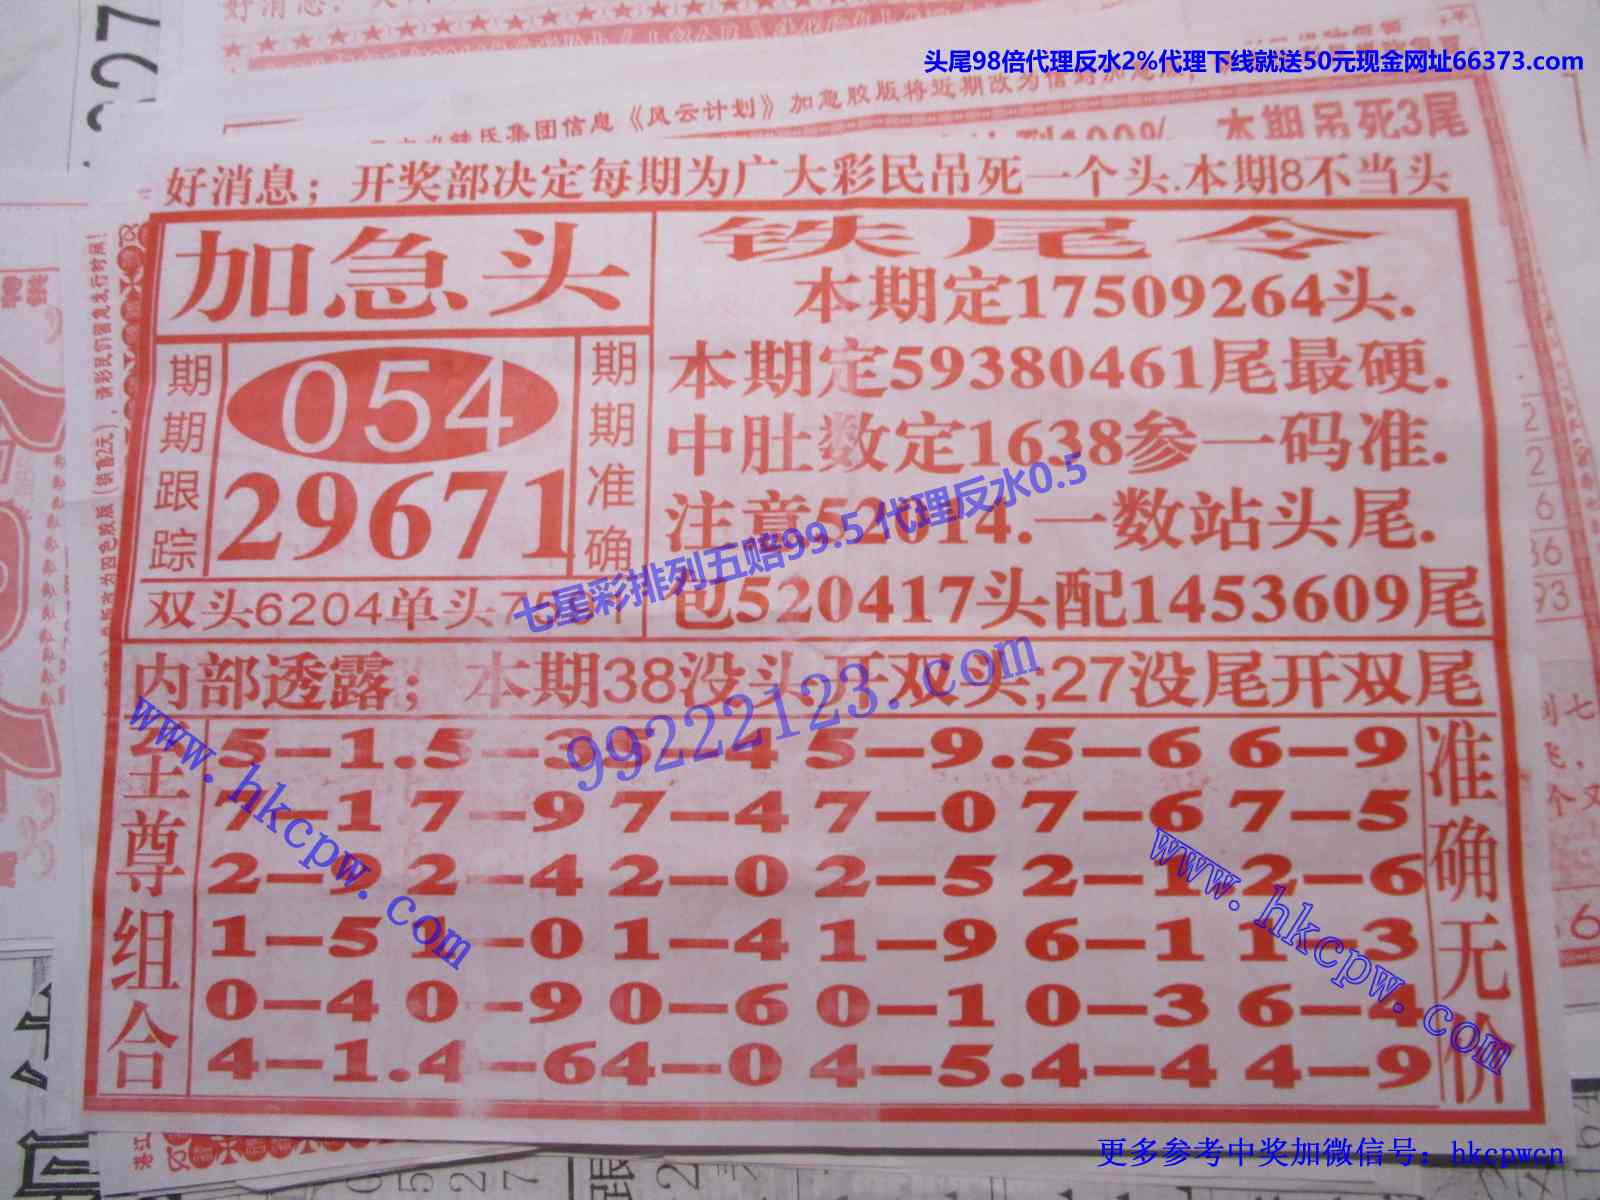 头尾98倍代理反水2%代理下线就送50元现金网址66373.com
集团信息《风云计划》加急胶版将近期改为
本期吊死3尾
好消息；开奖部决定每期为广大彩民吊死一个头.本期8不当头
加急头
期期跟踪
054
29671
期期准确
双头6204单头75
铁尾令
本期定17509264头.
本期定59380461尾最硬.
中肚数定1638参一码准.
注意52014.一数站头尾.
包520417头配1453609尾
七星彩排列五赔99.5 代理反水0.5
99222123.com
内部透露；本期38没头开双头;27没尾开双尾
至尊组合
5—1.5—3 5—4 5—9.5—6 6—9
7—1 7—9 7—4 7—0 7—6 7—5
2—9 2—4 2—0 2—5 2—1 2—6
1—5 1—0 1—4 1—9 6—1 1—3
0—4 0—9 0—6 0—1 0—3 6—4
4—1.4—6 4—0 4—5.4—4 4—9
准确无价
www.hkcpw.com
www.hkcpw.com
更多参考中奖加微信号：hkcpwcn